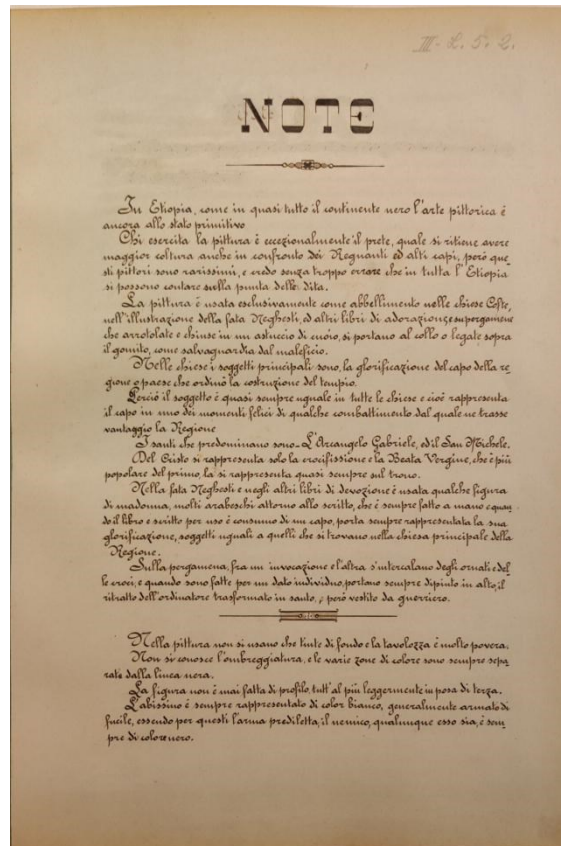 III-L. 5-2.
NOTE
In Etiopia, come in quasi tutto il continente nero l'arte pittorica è
ancora allo stato primitivo
Chi esercita la pittura è eccezionalmente il prete, quale si ritiene avere
maggior coltura anche in confronto dei Regnanti ed alti capi, però que
sti pittori sono rarissimi, e credo senza troppo errare che in tutta l'Etiopia
si possono contare sulla punta delle dita.
La pittura è usata esclusivamente come abbellimento nelle chiese Cofte,
nell'illustrazione della fata Neghesti, ed altri libri di adorazione e su pergamene
che arrotolate e chiuse in un astuccio di cuoio, si portano al collo o legate sopra
il gomito, come salvaguardia dal maleficio.
Nelle chiese i soggetti principali sono, la glorificazione del capo della re
gione o paese che ordinò la costruzione del tempio.
Perciò il soggetto è quasi sempre uguale in tutte le chiese e cioè rappresenta
il capo in uno dei momenti felici di qualche combattimento dal quale ne trasse
vantaggio la Regione
I santi che predominano sono - L'Arcangelo Gabriele, ed il San Michele.
Del Cristo si rappresenta solo la crocifissione e la Beata Vergine, che è più
popolare del primo, la si rappresenta quasi sempre sul trono.
Nella fata Neghesti e negli altri libri di devozione è usata qualche figura
di madonna, molti arabeschi attorno allo scritto, che è sempre fatto a mano e quan
do il libro è scritto per uso e consumo di un capo, porta sempre rappresentata la sua
glorificazione, soggetti uguali a quelli che si trovano nella chiesa principale della
Regione.
Sulla pergamena, fra un'invocazione e l'altra s'intercalano degli ornati e del
le croci, e quando sono fatte per un dato individuo, portano sempre dipinto in alto, il
ritratto dell'ordinatore trasformato in santo, però vestito da guerriero.
Nella pittura non si usano che tinte di fondo e la tavolozza è molto povera.
Non si conosce l'ombreggiatura, e le varie zone di colore sono sempre sepa
rate dalla linea nera.
La figura non è mai fatta di profilo, tutt'al più leggermente in posa di terza.
L'abissino è sempre rappresentato di color bianco, generalmente armato di
fucile, essendo per questi l'arma prediletta, il nemico, qualunque esso sia, è sem
pre di colore nero.